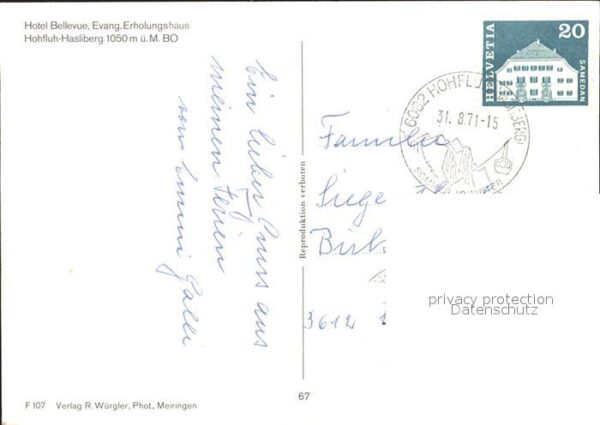 Hotel Bellevue, Evang. Erholungshaus
Hohfluh-Hasliberg 1050 m ü. M. BO
HELVETIA
20
SAMEDAN
6082 HOHFLUH
31.8.71-15
SOMMER WINTER
Ein lieber Gruss aus
meinen Ferien
vom
Familie
Siege
3612
Reproduktion verboten
privacy protection
Datenschutz
67
F 107 Verlag R. Würgler, Phot., Meiringen